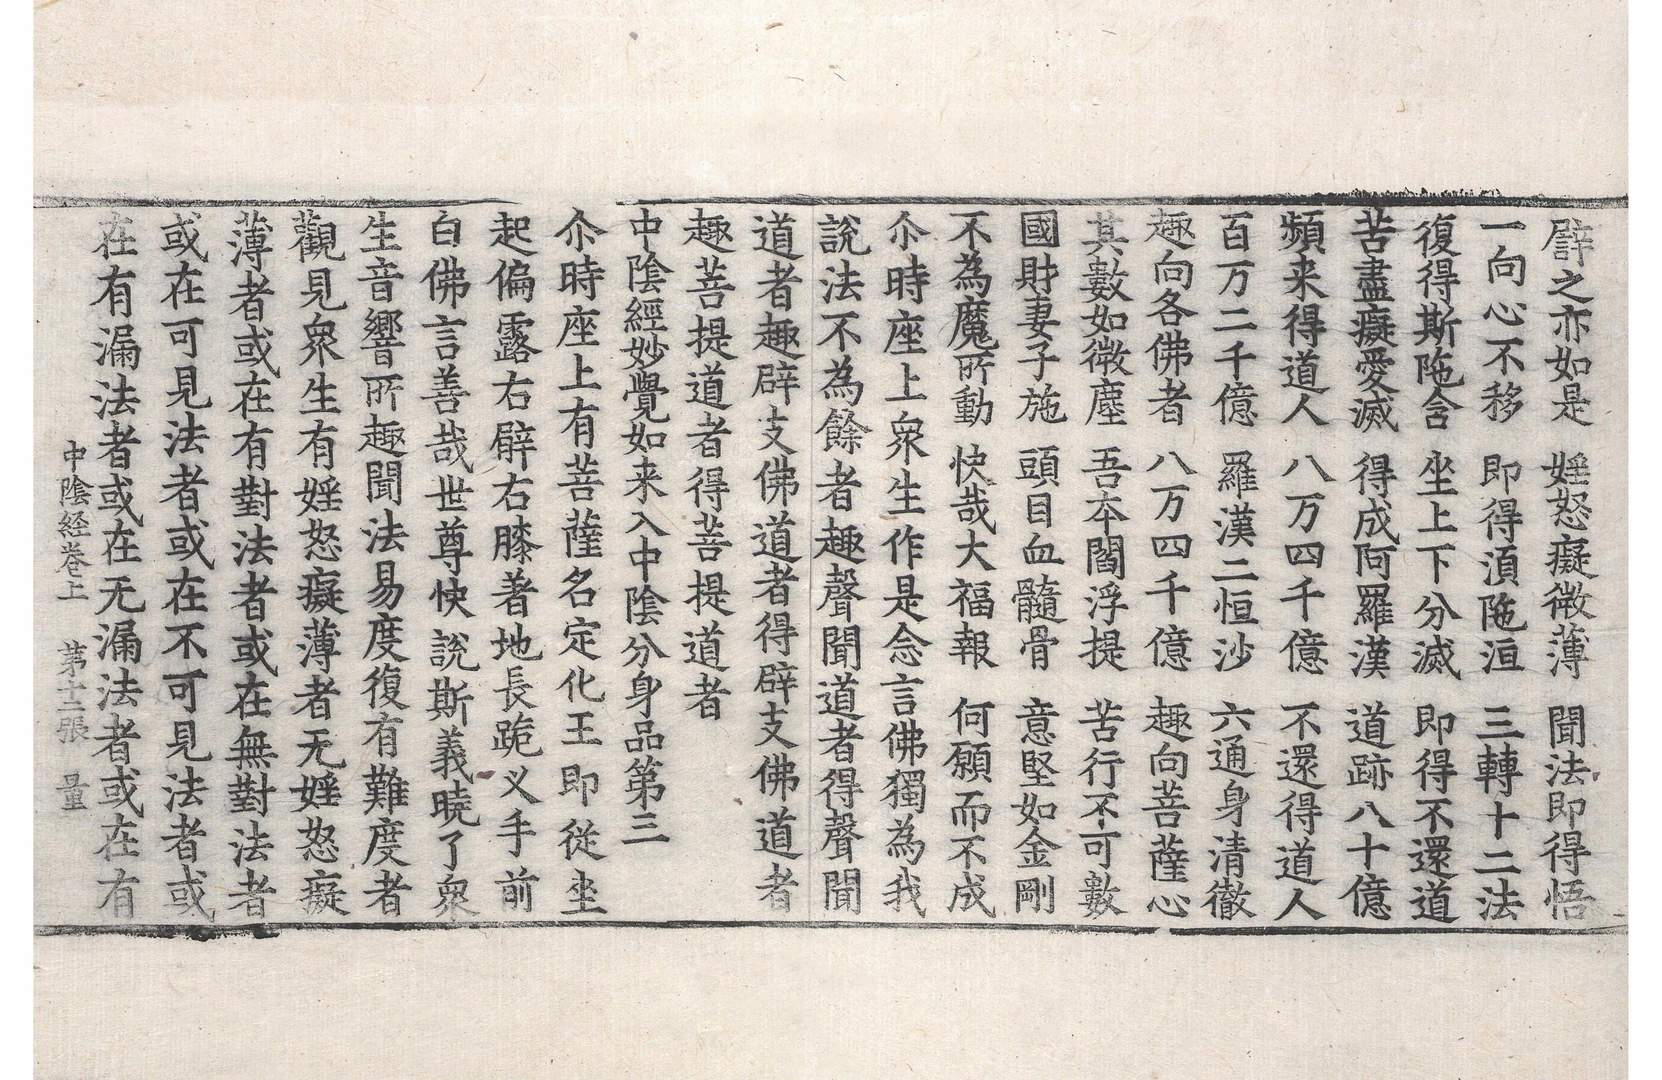 譬之亦如是 婬怒癡微薄 聞法即得悟
一向心不移 即得湏陁洹 三轉十二法
復得斯陁含 坐上下分滅 即得不還道
苦盡癡愛滅 得成阿羅漢 道跡八十億
頻来得道人 八万四千億 不還得道人
百万二千億 羅漢二恒沙 六通身清徹
趣向各佛者 八万四千億 趣向菩薩心
其數如微塵 吾夲閻浮提 苦行不可數
國財妻子施 頭目血髓骨 意堅如金剛
不為魔所動 快哉大福報 何願而不成
尒時座上衆生作是念言佛獨為我
說法不為餘者趣聲聞道者得聲聞
道者趣辟支佛道者得辟支佛道者
趣菩提道者得菩提道者
中陰經妙覺如来入中陰分身品第三
尒時座上有菩薩名定化王即從坐
起偏露右臂右膝著地長跪叉手前
白佛言善哉世尊快說斯義曉了衆
生音響所趣聞法易度復有難度者
觀見衆生有婬怒癡薄者无婬怒癡
薄者或在有對法者或在無對法者
或在可見法者或在不可見法者或
在有漏法者或在无漏法者或在有
中陰経卷上 第十二張 量